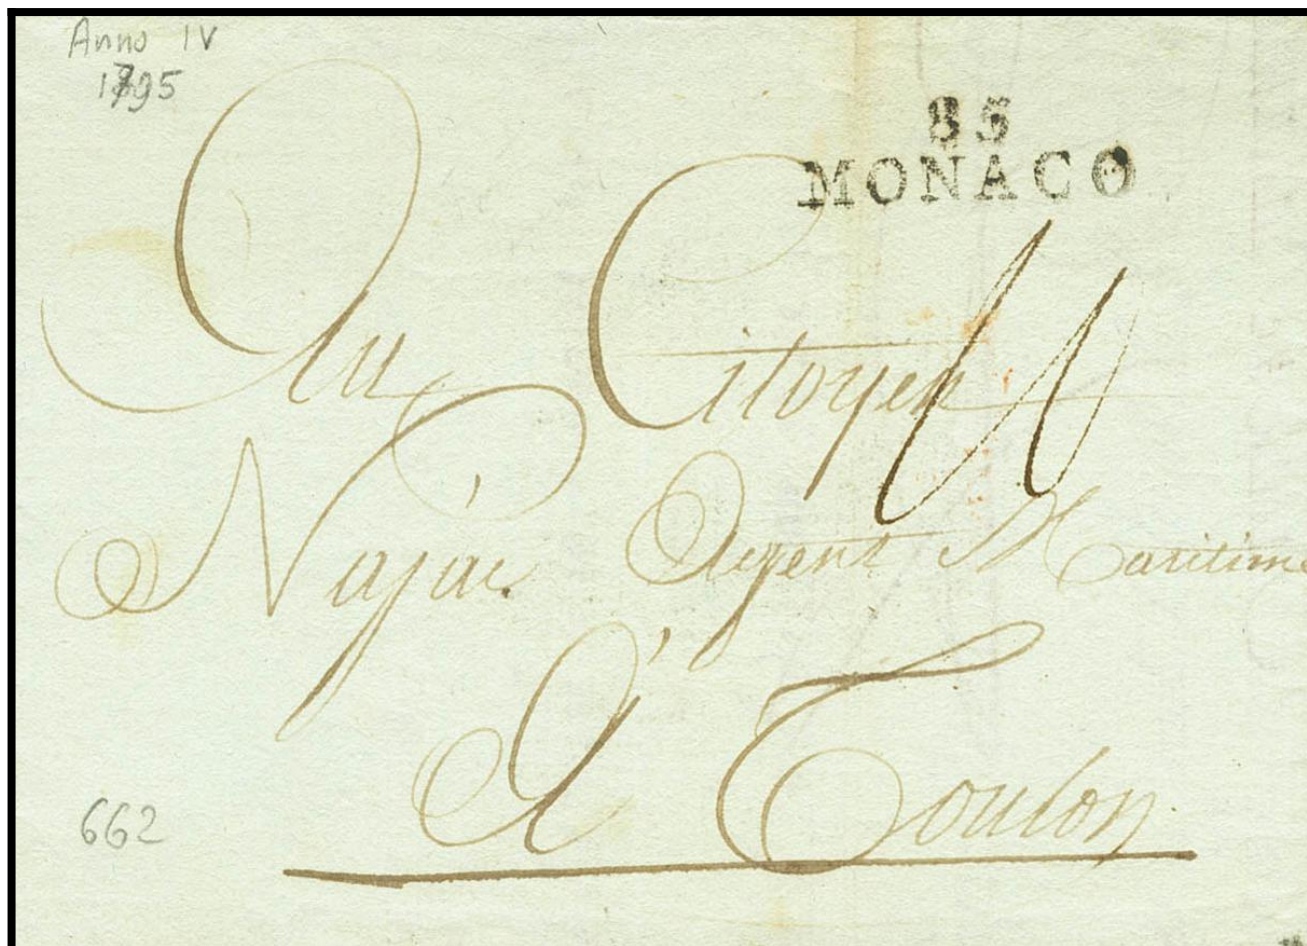 Anno IV
1795
85
MONACO
Au Citoyen
Najac Agent Maritime
à Toulon
662